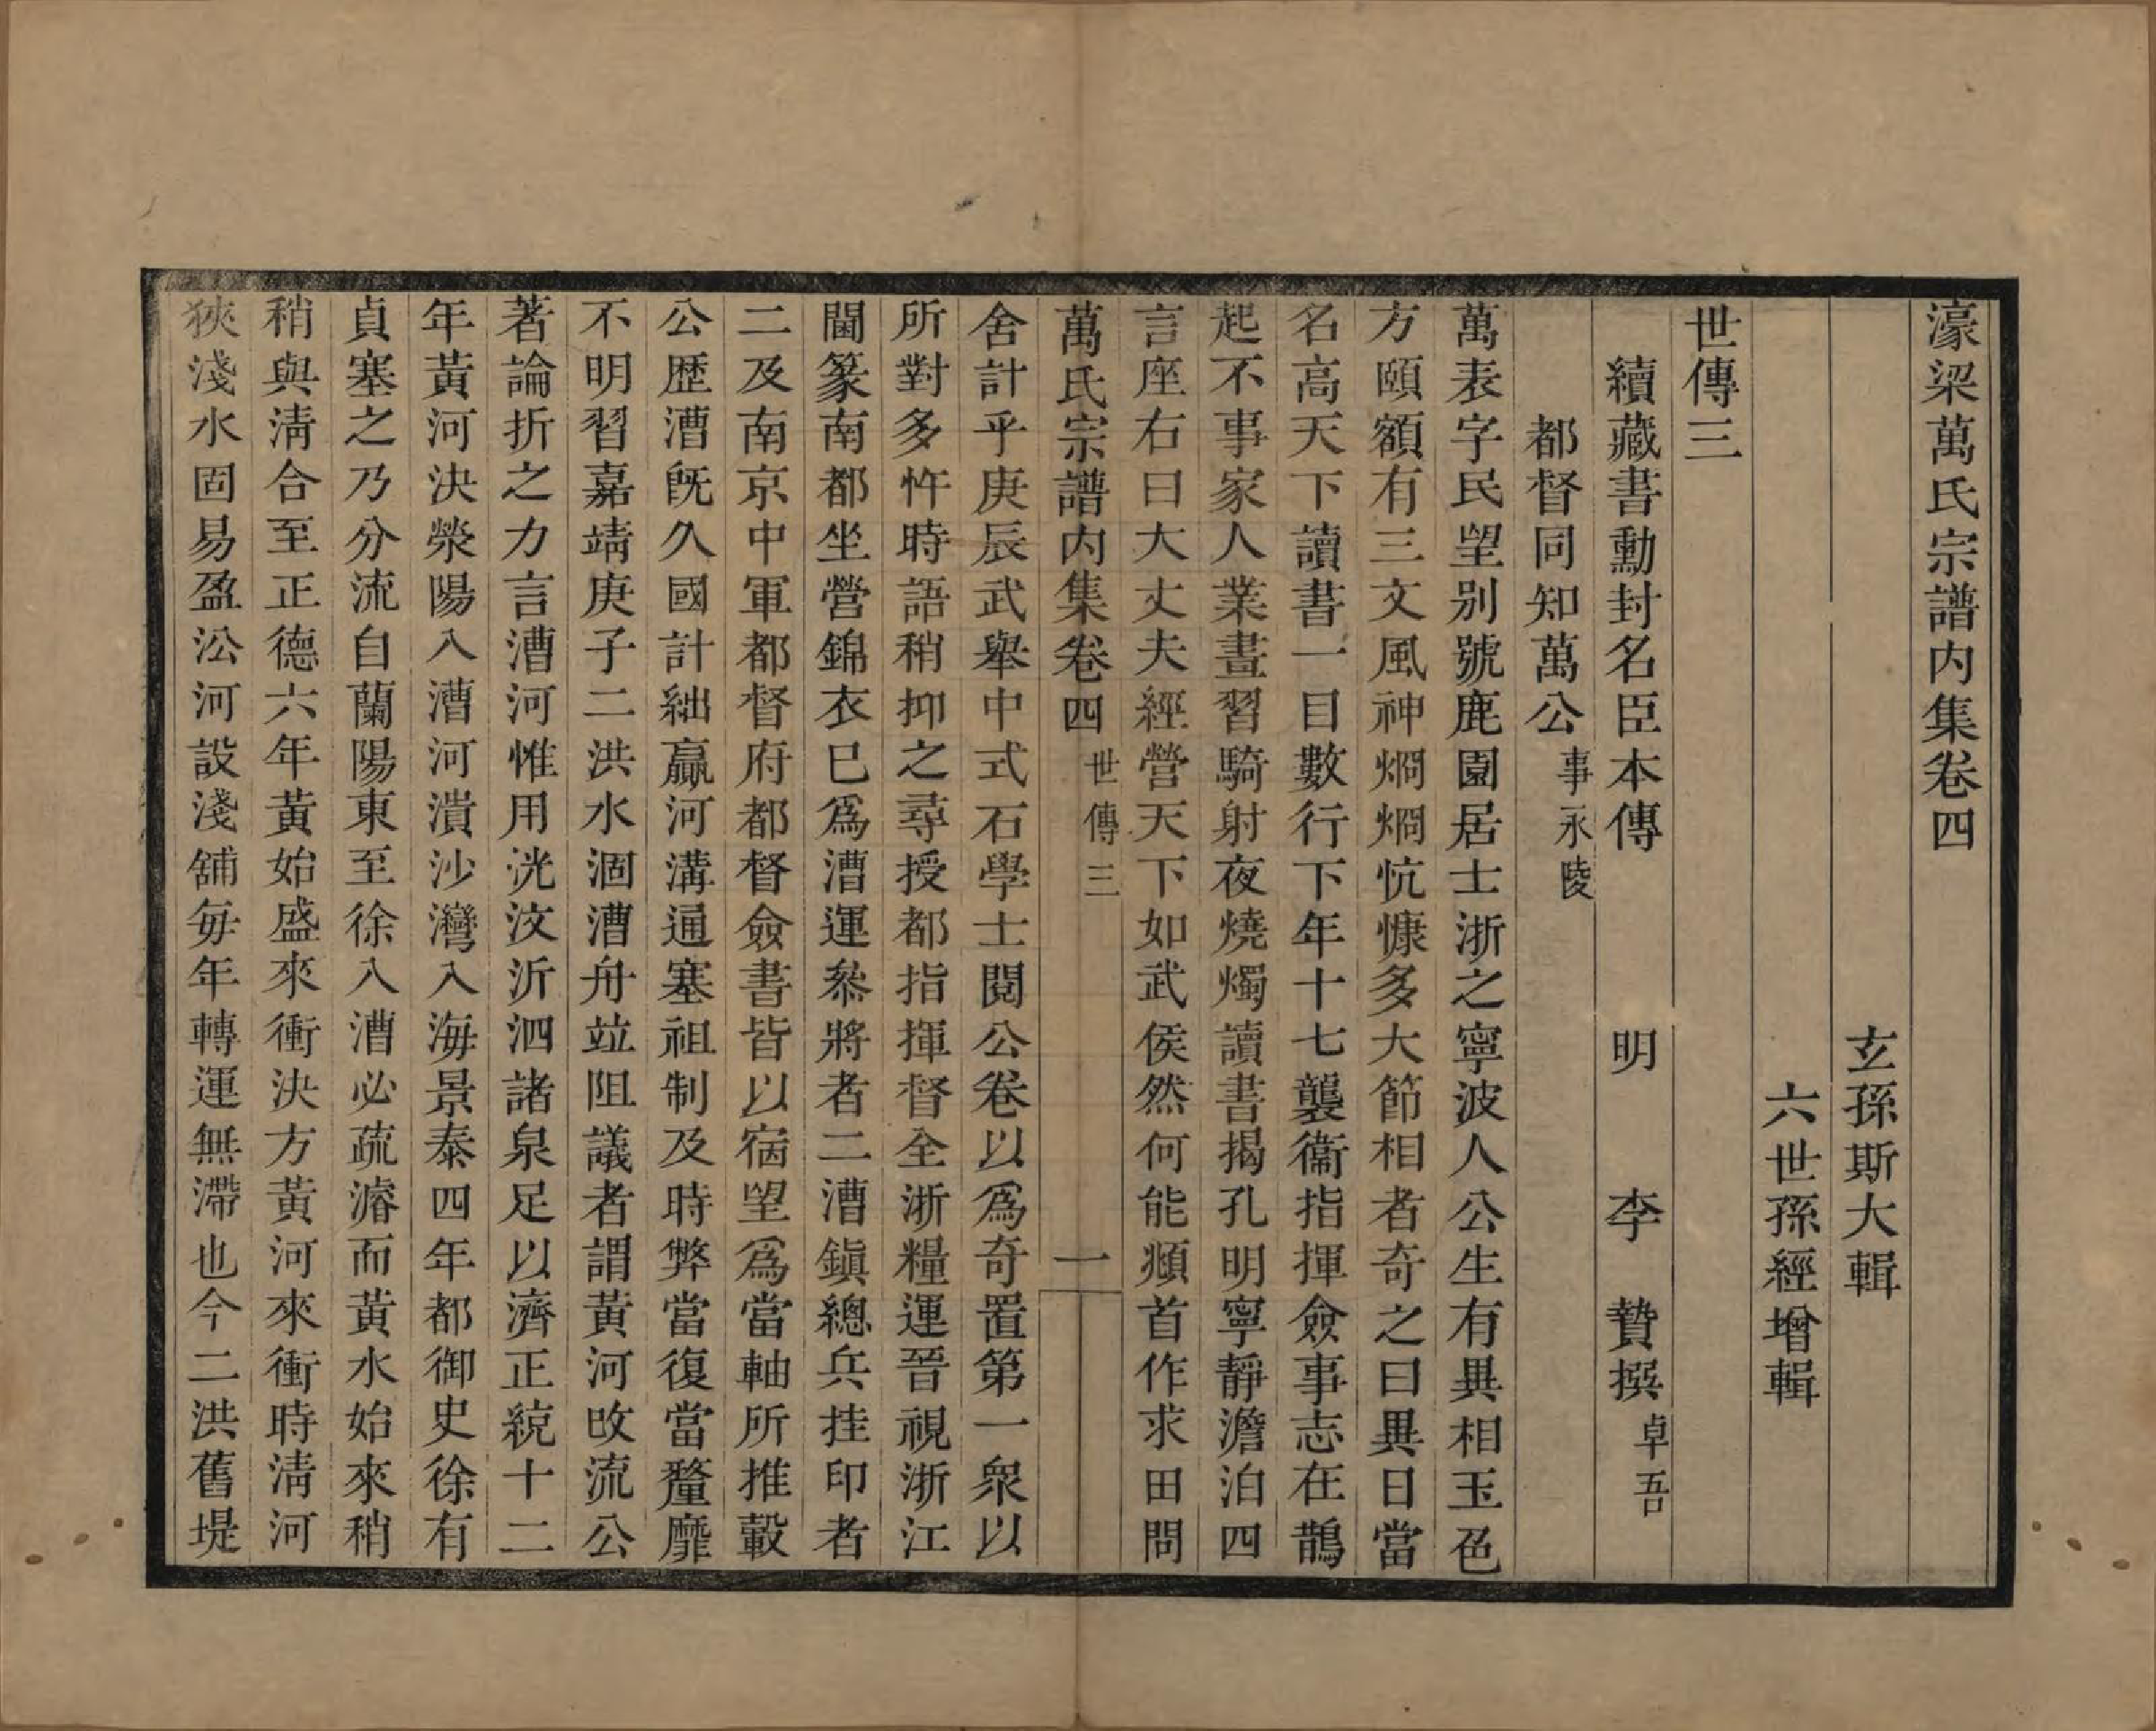 濠梁萬氏宗譜内集卷四
玄孫斯大輯
六世孫經增輯
世傳三
續藏書勳封名臣本傳　明　李　贄撰卓吾
都督同知萬公事永陵
萬表字民望别號鹿園居士浙之寧波人公生有異相玉色
方頤額有三文風神烱烱忼慷多大節相者奇之曰異日當
名高天下讀書一目數行下年十七襲衞指揮僉事志在鵲
起不事家人業晝習騎射夜燒燭讀書揭孔明寧靜澹泊四
言座右曰大丈夫經營天下如武侯然何能頫首作求田問
萬氏宗譜内集卷四　世傳三　一
舍計乎庚辰武舉中式石學士閱公卷以爲奇置第一衆以
所對多忤時語稍抑之尋授都指揮督全浙糧運晉視浙江
閫篆南都坐營錦衣已爲漕運叅將者二漕鎭總兵挂印者
二及南京中軍都督府都督僉書皆以宿望爲當軸所推轂
公歷漕旣久國計絀贏河溝通塞祖制及時弊當復當釐靡
不明習嘉靖庚子二洪水涸漕舟竝阻議者謂黄河改流公
著論折之力言漕河惟用洸汶沂泗諸泉足以濟正統十二
年黃河決滎陽入漕河潰沙灣入海景泰四年都御史徐有
貞塞之乃分流自蘭陽東至徐入漕必疏濬而黃水始來稍
稍與淸合至正德六年黃始盛來衝決方黃河來衝時淸河
狹淺水固易盈㳂河設淺舖每年轉運無滯也今二洪舊堤